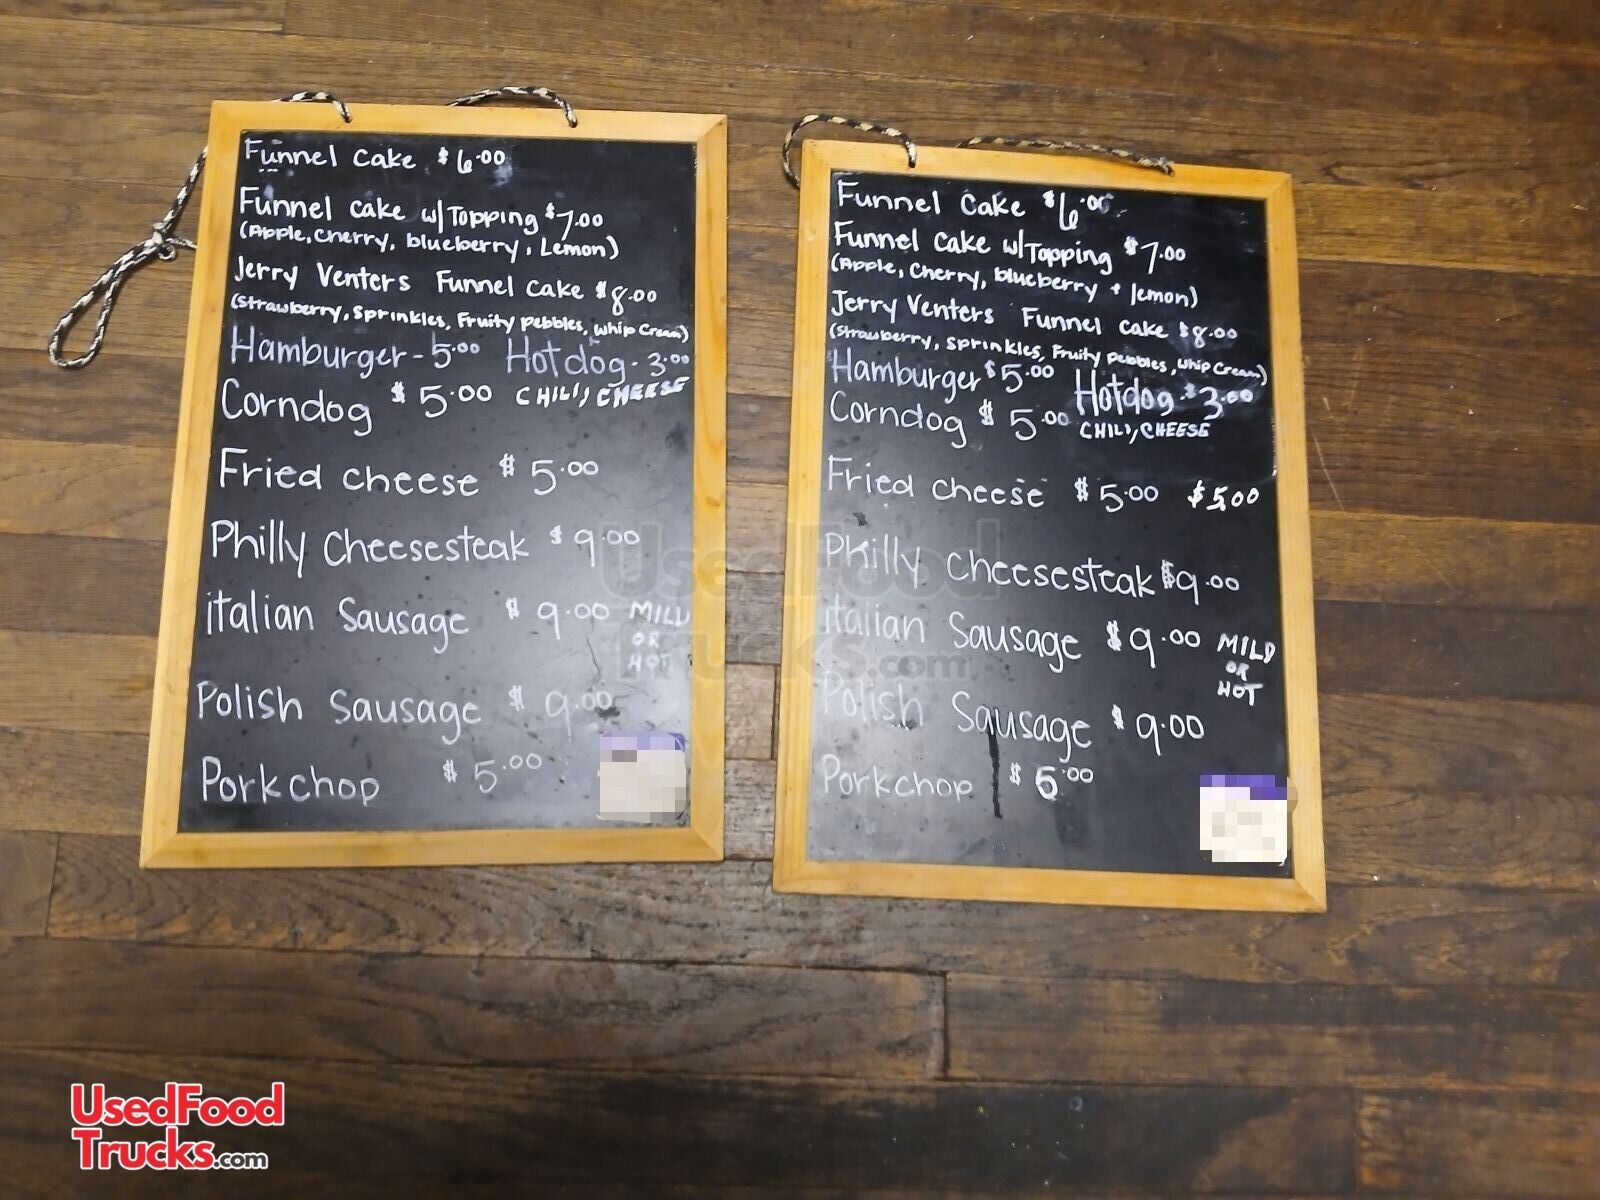 Funnel Cake $6.00
Funnel cake w/Topping $7.00
(Apple, Cherry, blueberry, Lemon)
Jerry Venters Funnel Cake $8.00
(Strawberry, Sprinkles, Fruity pebbles, Whip Cream)
Hamburger - 5.00 Hotdog - 3.00
Corndog $5.00 CHILI, CHEESE
Fried cheese $5.00
Philly Cheesesteak $9.00
italian Sausage $9.00 MILD
OR
HOT
Polish Sausage $9.00
Porkchop $5.00
Funnel Cake $6.00
Funnel Cake w/Topping $7.00
(Apple, Cherry, blueberry + lemon)
Jerry Venters Funnel Cake $8.00
(Strawberry, Sprinkles, Fruity pebbles, Whip Cream)
Hamburger $5.00 Hotdog $3.00
Corndog $5.00 CHILI, CHEESE
Fried cheese $5.00 $5.00
Philly Cheesesteak $9.00
italian Sausage $9.00 MILD
OR
HOT
Polish Sausage $9.00
Porkchop $5.00
UsedFood
Trucks.com
UsedFood
Trucks.com